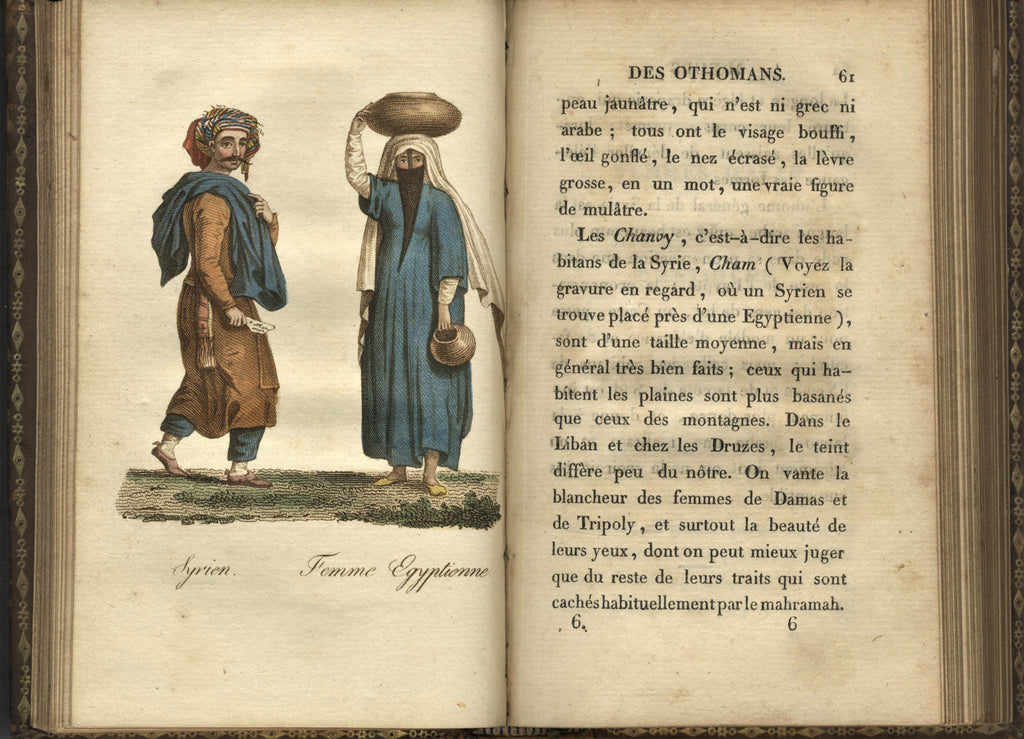 Syrien.
Femme Egyptienne
DES OTHOMANS. 61
peau jaunâtre, qui n'est ni grec ni
arabe ; tous ont le visage bouffi,
l'œil gonflé, le nez écrasé, la lèvre
grosse, en un mot, une vraie figure
de mulâtre.
Les Chanvy, c'est-à-dire les ha-
bitans de la Syrie, Cham ( Voyez la
gravure en regard, où un Syrien se
trouve placé près d'une Egyptienne ),
sont d'une taille moyenne, mais en
général très bien faits ; ceux qui ha-
bitent les plaines sont plus basanés
que ceux des montagnes. Dans le
Liban et chez les Druzes, le teint
diffère peu du nôtre. On vante la
blancheur des femmes de Damas et
de Tripoly, et surtout la beauté de
leurs yeux, dont on peut mieux juger
que du reste de leurs traits qui sont
cachés habituellement par le mahramah.
6. 6